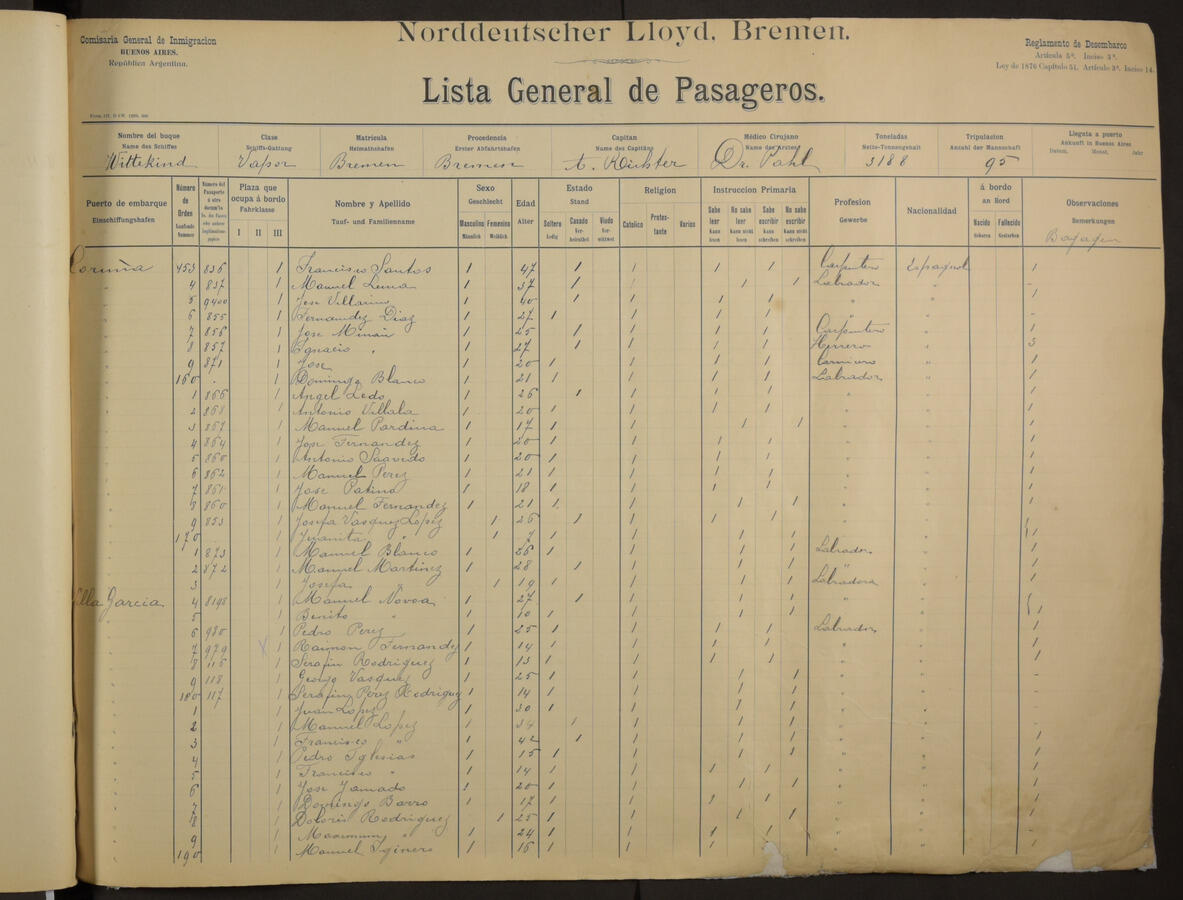 Norddeutscher Lloyd, Bremen.
Comisaría General de Inmigracion
BUENOS AIRES.
República Argentina.
Reglamento de Desembarco
Artícula 5º. Inciso 3º.
Ley de 1876 Capítulo 51, Artículo 3º. Inciso 14.
Lista General de Pasageros.
Nombre del buque Clase Matricula Procedencia Capitan Médico Cirujano Toneladas Tripulacion Llegata a puerto
Name des Schiffes Schiffs-Gattung Heimathshafen Erster Abfahrtshafen Name des Capitäns Name des Arztes Netto-Tonnengehalt Anzahl der Mannschaft Ankunft in Buenos Aires
Datum. Monat. Jahr
Wittekind Vapor Bremen Bremen A. Dr. Pahl 3188 95
Puerto de embarque Número de Orden Plaza que ocupa á bordo Nombre y Apellido Sexo Edad Estado Religion Instruccion Primaria Profesion Nacionalidad á bordo Observaciones
Einschiffungshafen Laufende Nummer Fahrklasse Tauf- und Familienname Geschlecht Alter Stand Gewerbe an Bord Bemerkungen
I II III Masculino Femenino Soltero Casado Viudo Catolico Protestante Varios Sabe leer No sabe leer Sabe escribir No sabe escribir Nacido Fallecido
Männlich Weiblich Ledig Verheirathet Verwittwet Kann lesen Kann nicht lesen Kann schreiben Kann nicht schreiben Geboren Gestorben
Coruña 453 836 1 Francisco Santos 1 47 1 1 1 1 Carpintero Espagnol 1
4 837 1 Manuel Lema 1 37 1 1 1 1 Labrador -
5 9400 1 Jose Villarino 1 40 1 1 1 1 " " 1
6 855 1 Fernandez Diaz 1 27 1 1 1 1 " " -
7 856 1 Jose 1 25 1 1 1 1 Carpintero " 1
8 857 1 Ignacio " 1 27 1 1 1 1 Herrero " 3
9 871 1 Jose 1 20 1 1 1 1 " 1
160 1 Domingo Blanco 1 21 1 1 1 1 Labrador " 1
1 866 1 Angel Ledo 1 26 1 1 1 1 " " 1
2 868 1 Antonio Villala 1 20 1 1 1 1 " " 1
3 867 1 Manuel Pardina 1 17 1 1 1 1 " " 1
4 864 1 Jose Fernandez 1 20 1 1 1 1 " " 1
5 860 1 Antonio Saavedo 1 20 1 1 1 1 " " 1
6 862 1 Manuel Perez 1 21 1 1 1 1 " " 1
7 861 1 Jose Patino 1 18 1 1 1 1 " " 1
8 860 1 Manuel Fernandez 1 21 1 1 1 1 " " 1
9 853 1 Josefa Vasquez Lopez 1 26 1 1 1 1 "
170 1 Juanita " 1 7 1 1 1 1 " 1
1 873 1 Manuel Blanco 1 26 1 1 1 1 Labrador " 1
2 872 1 Manuel Martinez 1 28 1 1 1 1 " " 1
3 1 Josefa " 1 19 1 1 1 1 Labradora " 1
Villa Garcia 4 8198 1 Manuel Novoa 1 27 1 1 1 1 "
5 1 Benito " 1 10 1 1 1 1 " 1
6 980 1 Pedro Perez 1 25 1 1 1 1 Labrador " 1
7 979 1 Raimon Fernandez 1 14 1 1 1 1 " " 1
8 115 1 Serafin Rodriguez 1 13 1 1 1 1 " " 1
9 118 1 Vasquez 1 25 1 1 1 1 " " -
180 117 1 Serafin Perez Rodriguez 1 14 1 1 1 1 " " -
1 1 Juan Lopez 1 30 1 1 1 1 " " 1
2 1 Manuel Lopez 1 34 1 1 1 1 " " -
3 1 Francisco " 1 42 1 1 1 1 " " 1
4 1 Pedro Iglesias 1 15 1 1 1 1 " " 1
5 1 Francisco " 1 14 1 1 1 1 " " 1
6 1 Jose 1 20 1 1 1 1 " " 1
7 1 Domingo Barro 1 17 1 1 1 1 " " 1
8 1 Doloris Rodriguez 1 25 1 1 1 1 " " 1
9 1 " 1 24 1 1 1 " 1
190 1 Manuel 1 16 1 1 1 1